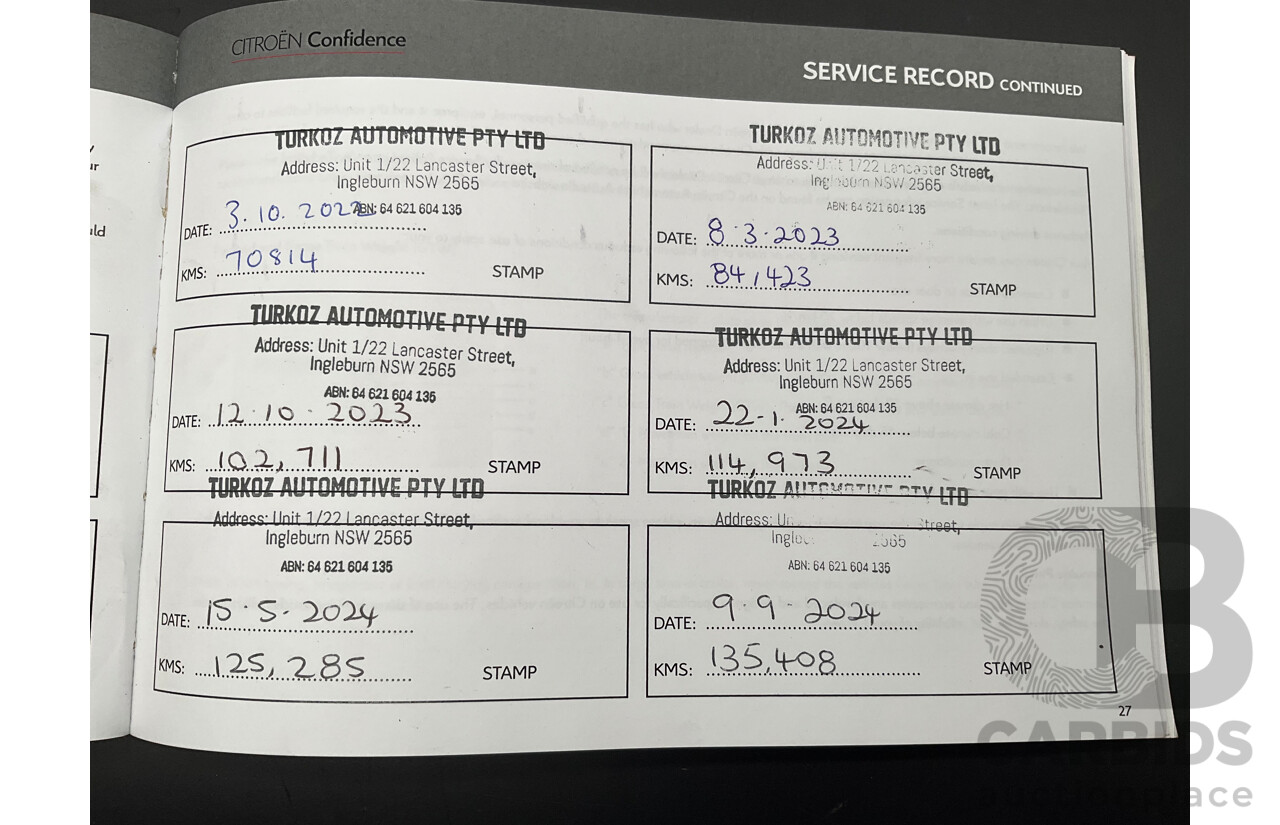 CITROËN Confidence
SERVICE RECORD CONTINUED
ur
uld
TURKOZ AUTOMOTIVE PTY LTD
Address: Unit 1/22 Lancaster Street,
Ingleburn NSW 2565
ABN: 64 621 604 135
DATE: 3.10.2022
KMS: 70814
STAMP
TURKOZ AUTOMOTIVE PTY LTD
Address: Unit 1/22 Lancaster Street,
Ingleburn NSW 2565
ABN: 64 621 604 135
DATE: 8.3.2023
KMS: 84,423
STAMP
TURKOZ AUTOMOTIVE PTY LTD
Address: Unit 1/22 Lancaster Street,
Ingleburn NSW 2565
ABN: 64 621 604 135
DATE: 12.10.2023
KMS: 102,711
STAMP
TURKOZ AUTOMOTIVE PTY LTD
Address: Unit 1/22 Lancaster Street,
Ingleburn NSW 2565
ABN: 64 621 604 135
DATE: 22-1.2024
KMS: 114,973
STAMP
TURKOZ AUTOMOTIVE PTY LTD
Address: Unit 1/22 Lancaster Street,
Ingleburn NSW 2565
ABN: 64 621 604 135
DATE: 15.5.2024
KMS: 125,285
STAMP
TURKOZ AUTOMOTIVE PTY LTD
Address: Street,
2565
ABN: 64 621 604 135
DATE: 9.9.2024
KMS: 135,408
STAMP
27
CB
CARBIDS
auctionplace